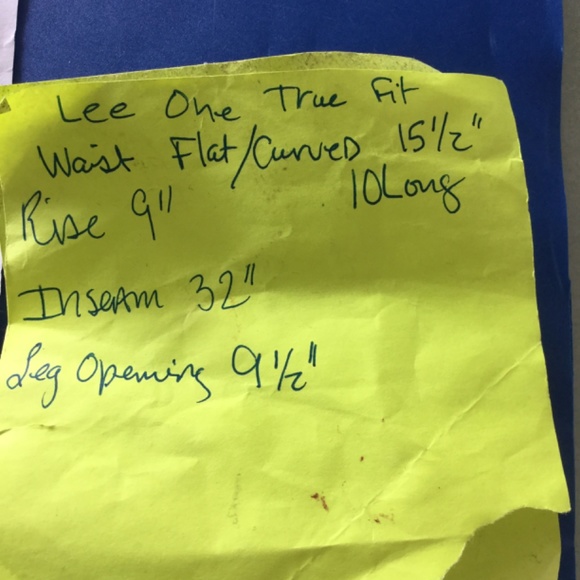 Lee One True Fit
Waist Flat/Curved 15 1/2"
Rise 9" 10Long
Inseam 32"
Leg Opening 9 1/2"